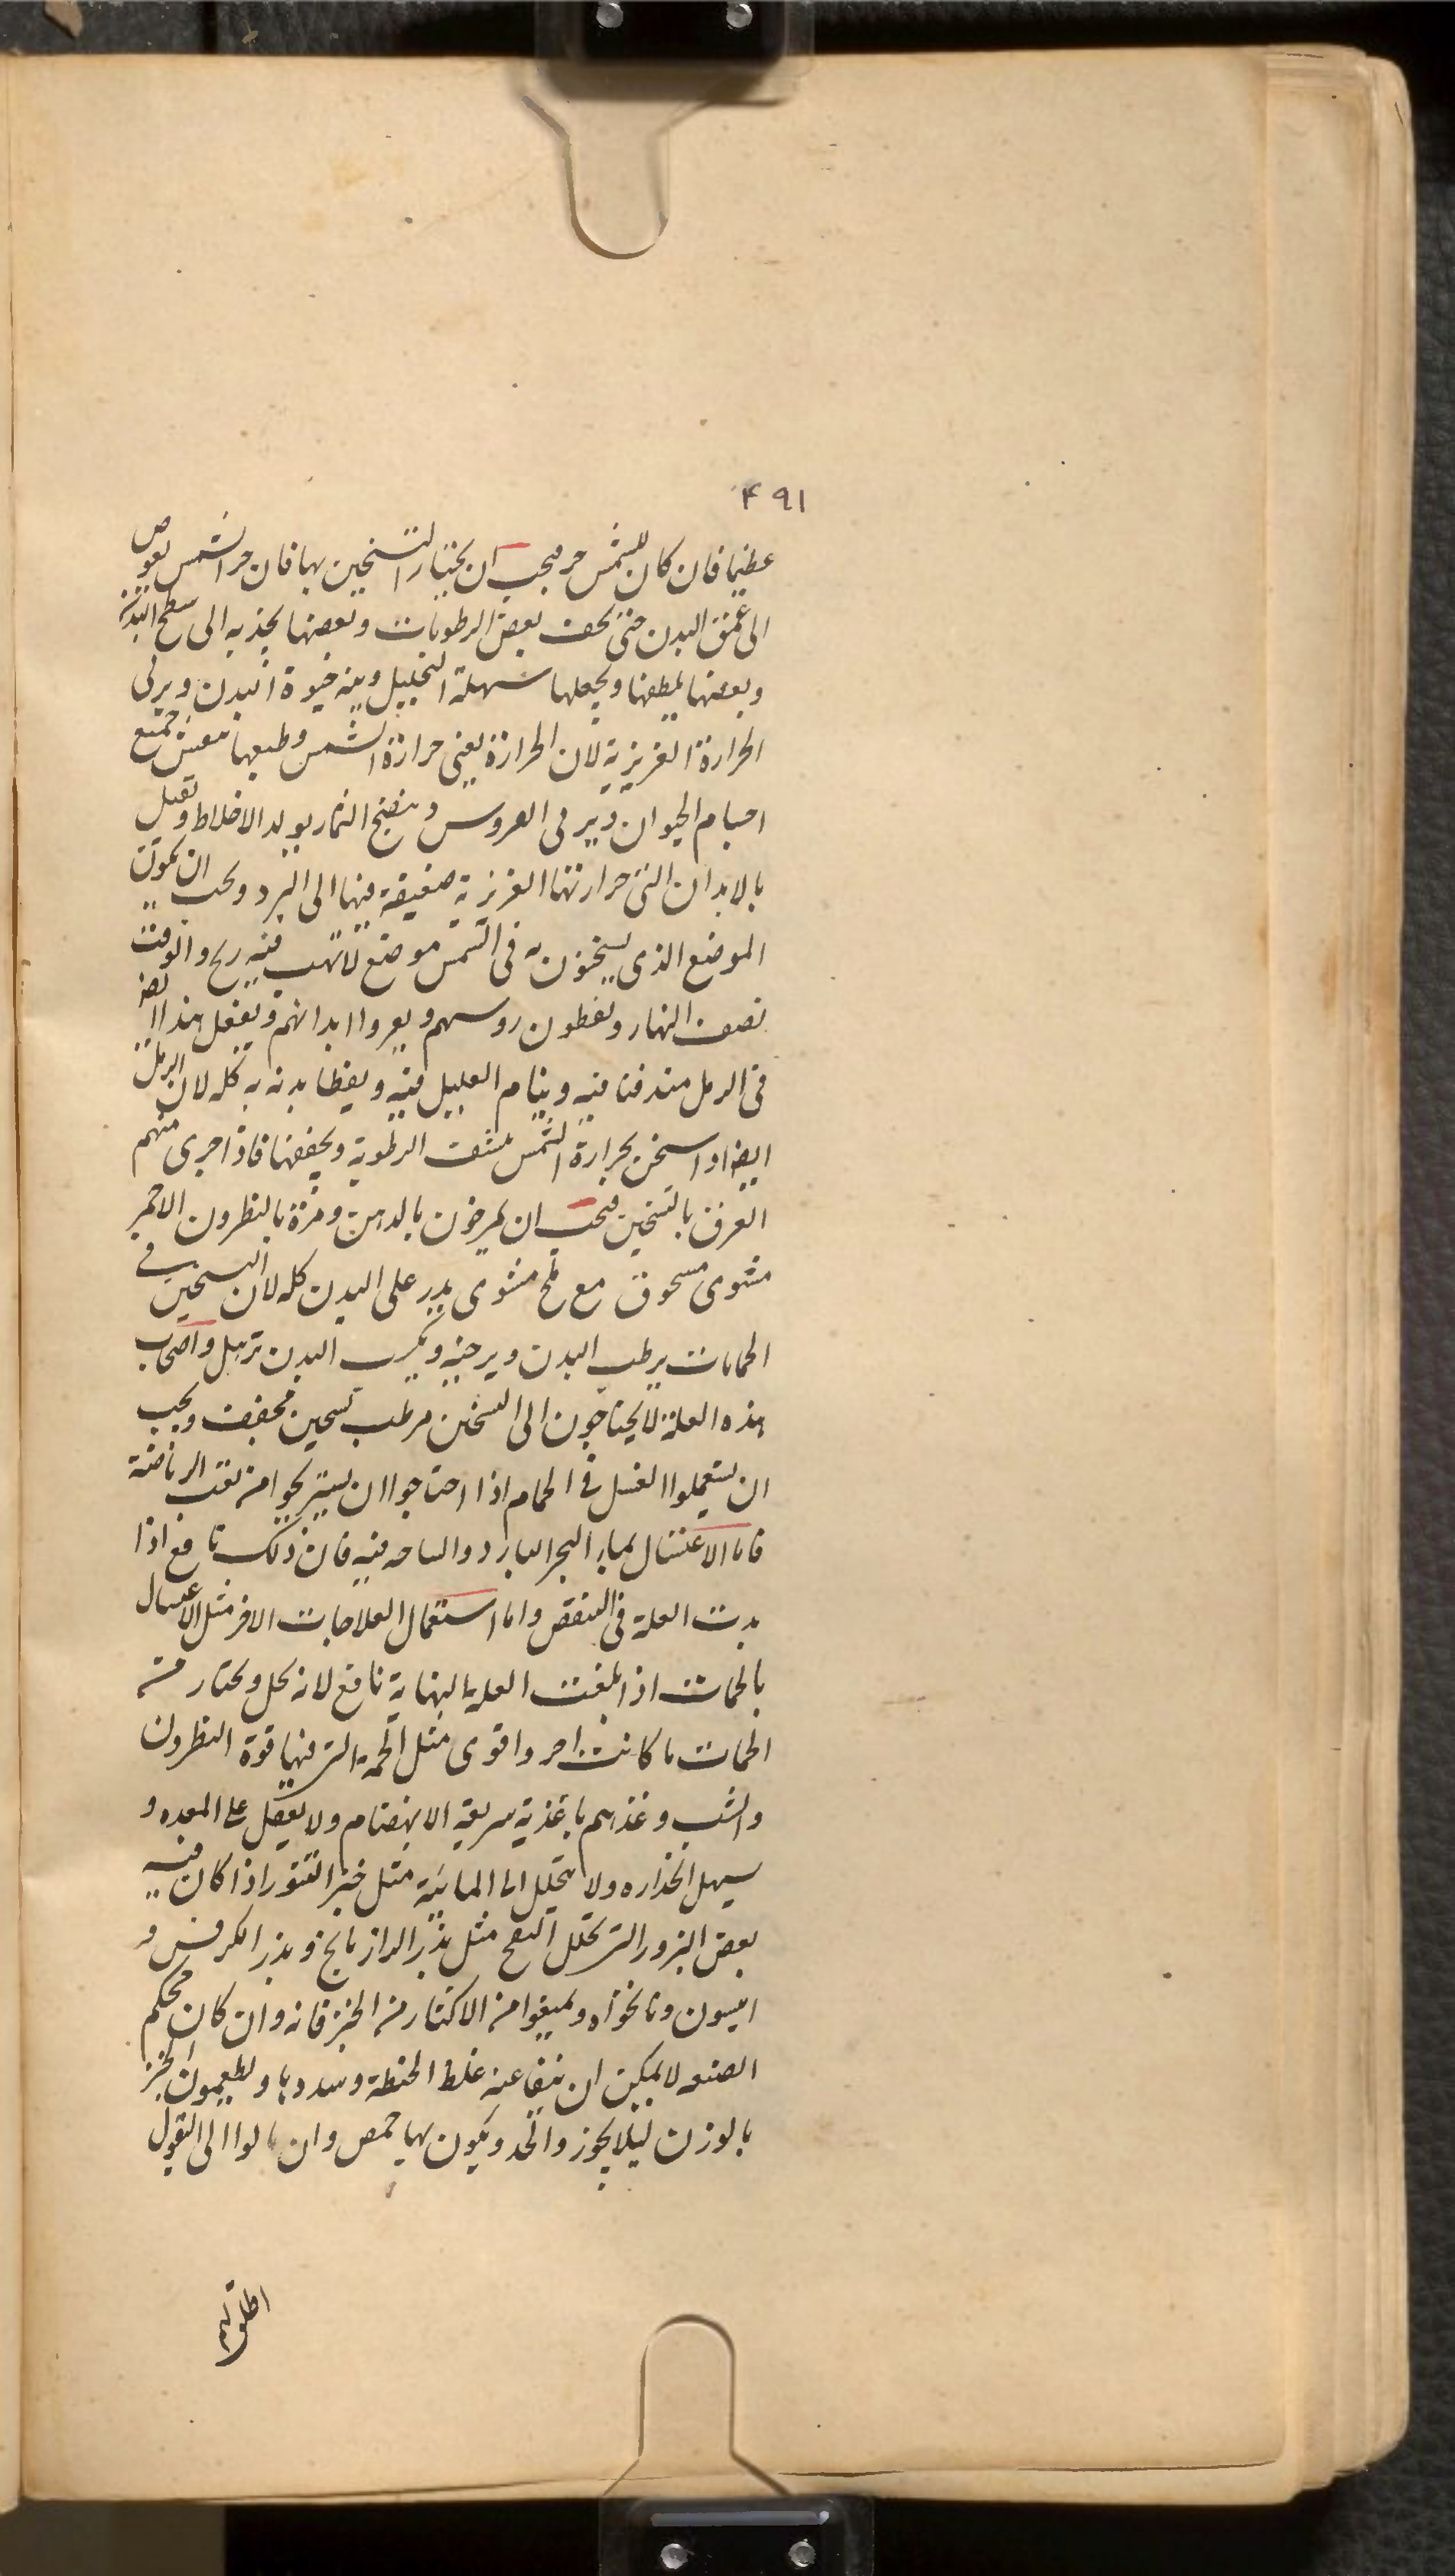 ۴۹۱
عظیما فان كان للشمس حر فیجب ان یختار التسخین بها فان حر الشمس یغوص
الى عمق البدن حتى یجف بعض الرطوبات وبعضها یجذبه الى سطح البدن
وبعضها یلطفها ویجعلها سهلة التحلیل وینه حیوة البدن ویربى
الحرارة الغریزیة لان الحرارة یعنى حرارة الشمس وطبعها تنعش جمیع
اجسام الحیوان ویربى العروس وینضج الثمار یولد الاخلاط وتقبل
بالابدان التى حرارتها الغریزیة ضعیفة فیها الى البرد ویجب ان تكون
الموضع الذى یسخنون به فى الشمس موضع لا تهب فیه ریح والوقت
نصف النهار ویغطون روسهم ویعروا ابدانهم ویفعل هذا ایضا
فى الرمل مندفنا فیه وینام العلیل فیه ویغطا بدنه به كله لان الرمل
ایضا اذا سخن بحرارة الشمس ینشف الرطوبة ویجففها فاذا جرى منهم
العرق بالتسخین فیجب ان یمرخون بالدهن ومرة بالنطرون الاحمر
مشوى مسحوق مع ملح مشوى یذر على البدن كله لان التسخین فى
الحمامات یرطب البدن ویرخیه ویكسب البدن ترهل واصحاب
هذه العلة لا یحتاجون الى السخن مرطب تسخین مجفف ویجب
ان یستعملوا الغسل فى الحمام اذا احتاجوا ان یستریحوا من تعب الریاضة
فاما الاغتسال بماء البحر البارد والساحه فیه فان ذلك نافع اذا
بدت العلة فى النقص واما استعمال العلاجات الاخر مثل الاغسال
بالحمات اذا بلغت العلة النهایة نافع لانه یحل ویختار من
الحمات ما كانت احر واقوى مثل الحمة التى فیها قوة النطرون
والشب وغذهم باغذیة سریعة الانهضام ولا یثقل على المعده و
سهل انحداره ولا یتحلل الى المائیة مثل خبز التنور اذا كان فیه
بعض البزور التى تحلل النفخ مثل بذر الرازیانج وبذر الكرفس و
انیسون ونانخواه ویمنعوا من الاكثار من الخبز فانه وان كان محكم
الصنعه لا یمكن ان ینقا عنه غلظ الحنطة وسددها ویطعمون الخبز
بالوزن لیلا یجوز والحد ویكون بها حمص وان مالوا الى البقول
اطلق لهم